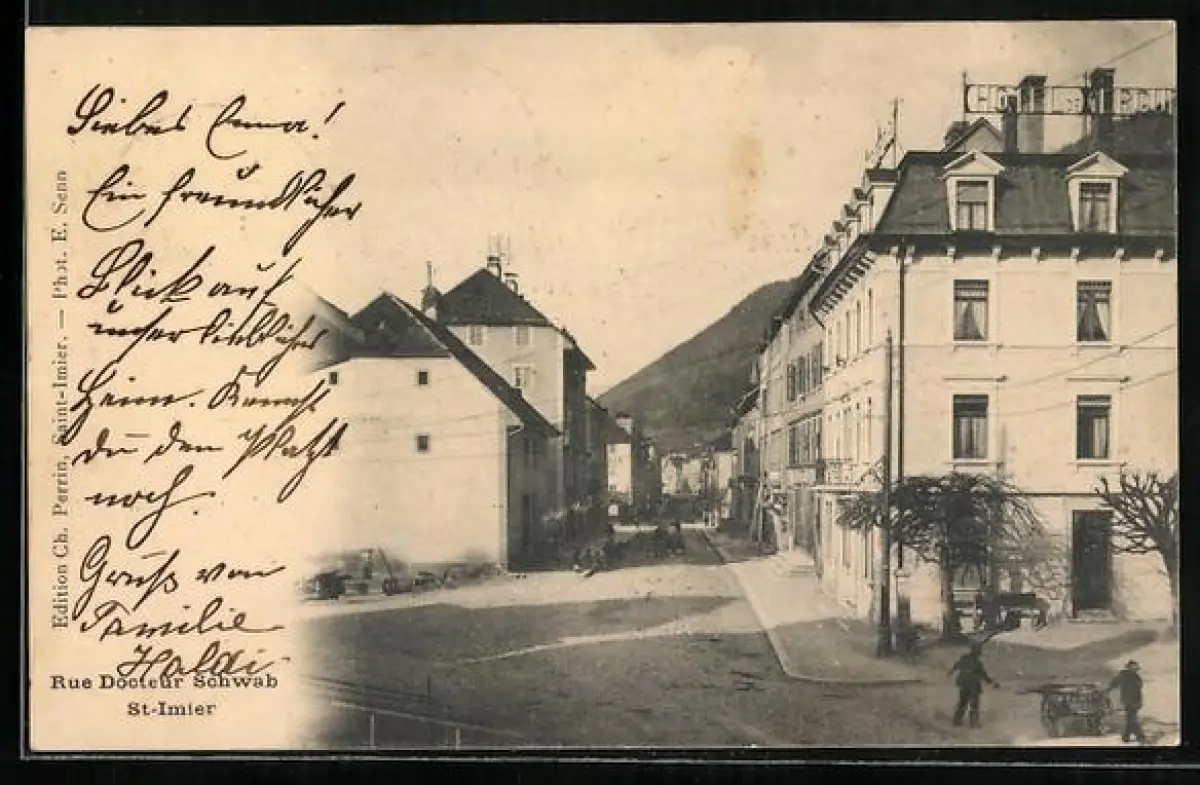 Liebes Emma!
Ein freundlicher
Blick auf
unser liebliches
Heim. Kennst
du den Platz
noch.
Gruß von
Familie
Haldi.
Rue Docteur Schwab
St-Imier
Edition Ch. Perrin, Saint-Imier. — Phot. E. Senn
HOTEL